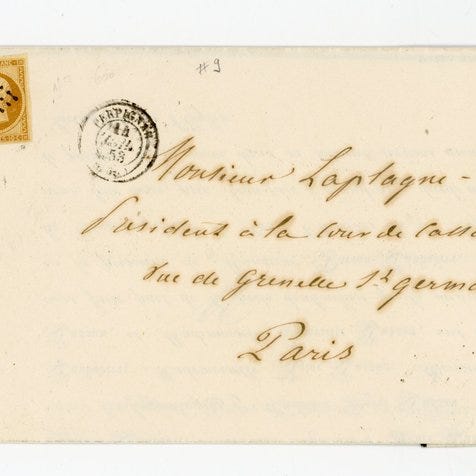 #9
PERPIGNAN
14
JUIL.
53
Monsieur Laplagne -
Président à la Cour de Cassa
rue de Grenelle St. germa
Paris